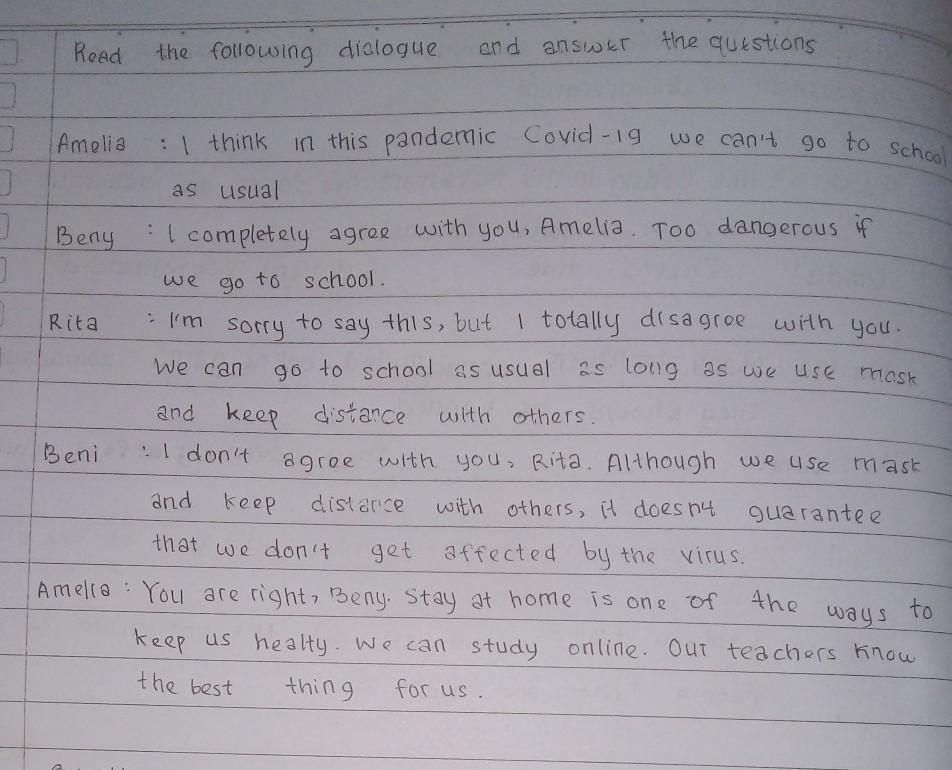 Read the following dialogue and answer the questions
Amelia : I think in this pandemic Covid-19 we can't go to school
as usual
Beny : I completely agree with you, Amelia. Too dangerous if
we go to school.
Rita : I'm sorry to say this, but I totally disagree with you.
We can go to school as usual as long as we use mask
and keep distance with others.
Beni : I don't agree with you, Rita. Although we use mask
and keep distance with others, it doesn't guarantee
that we don't get affected by the virus.
Amelia : You are right, Beny. Stay at home is one of the ways to
keep us healty. We can study online. Our teachers know
the best thing for us.